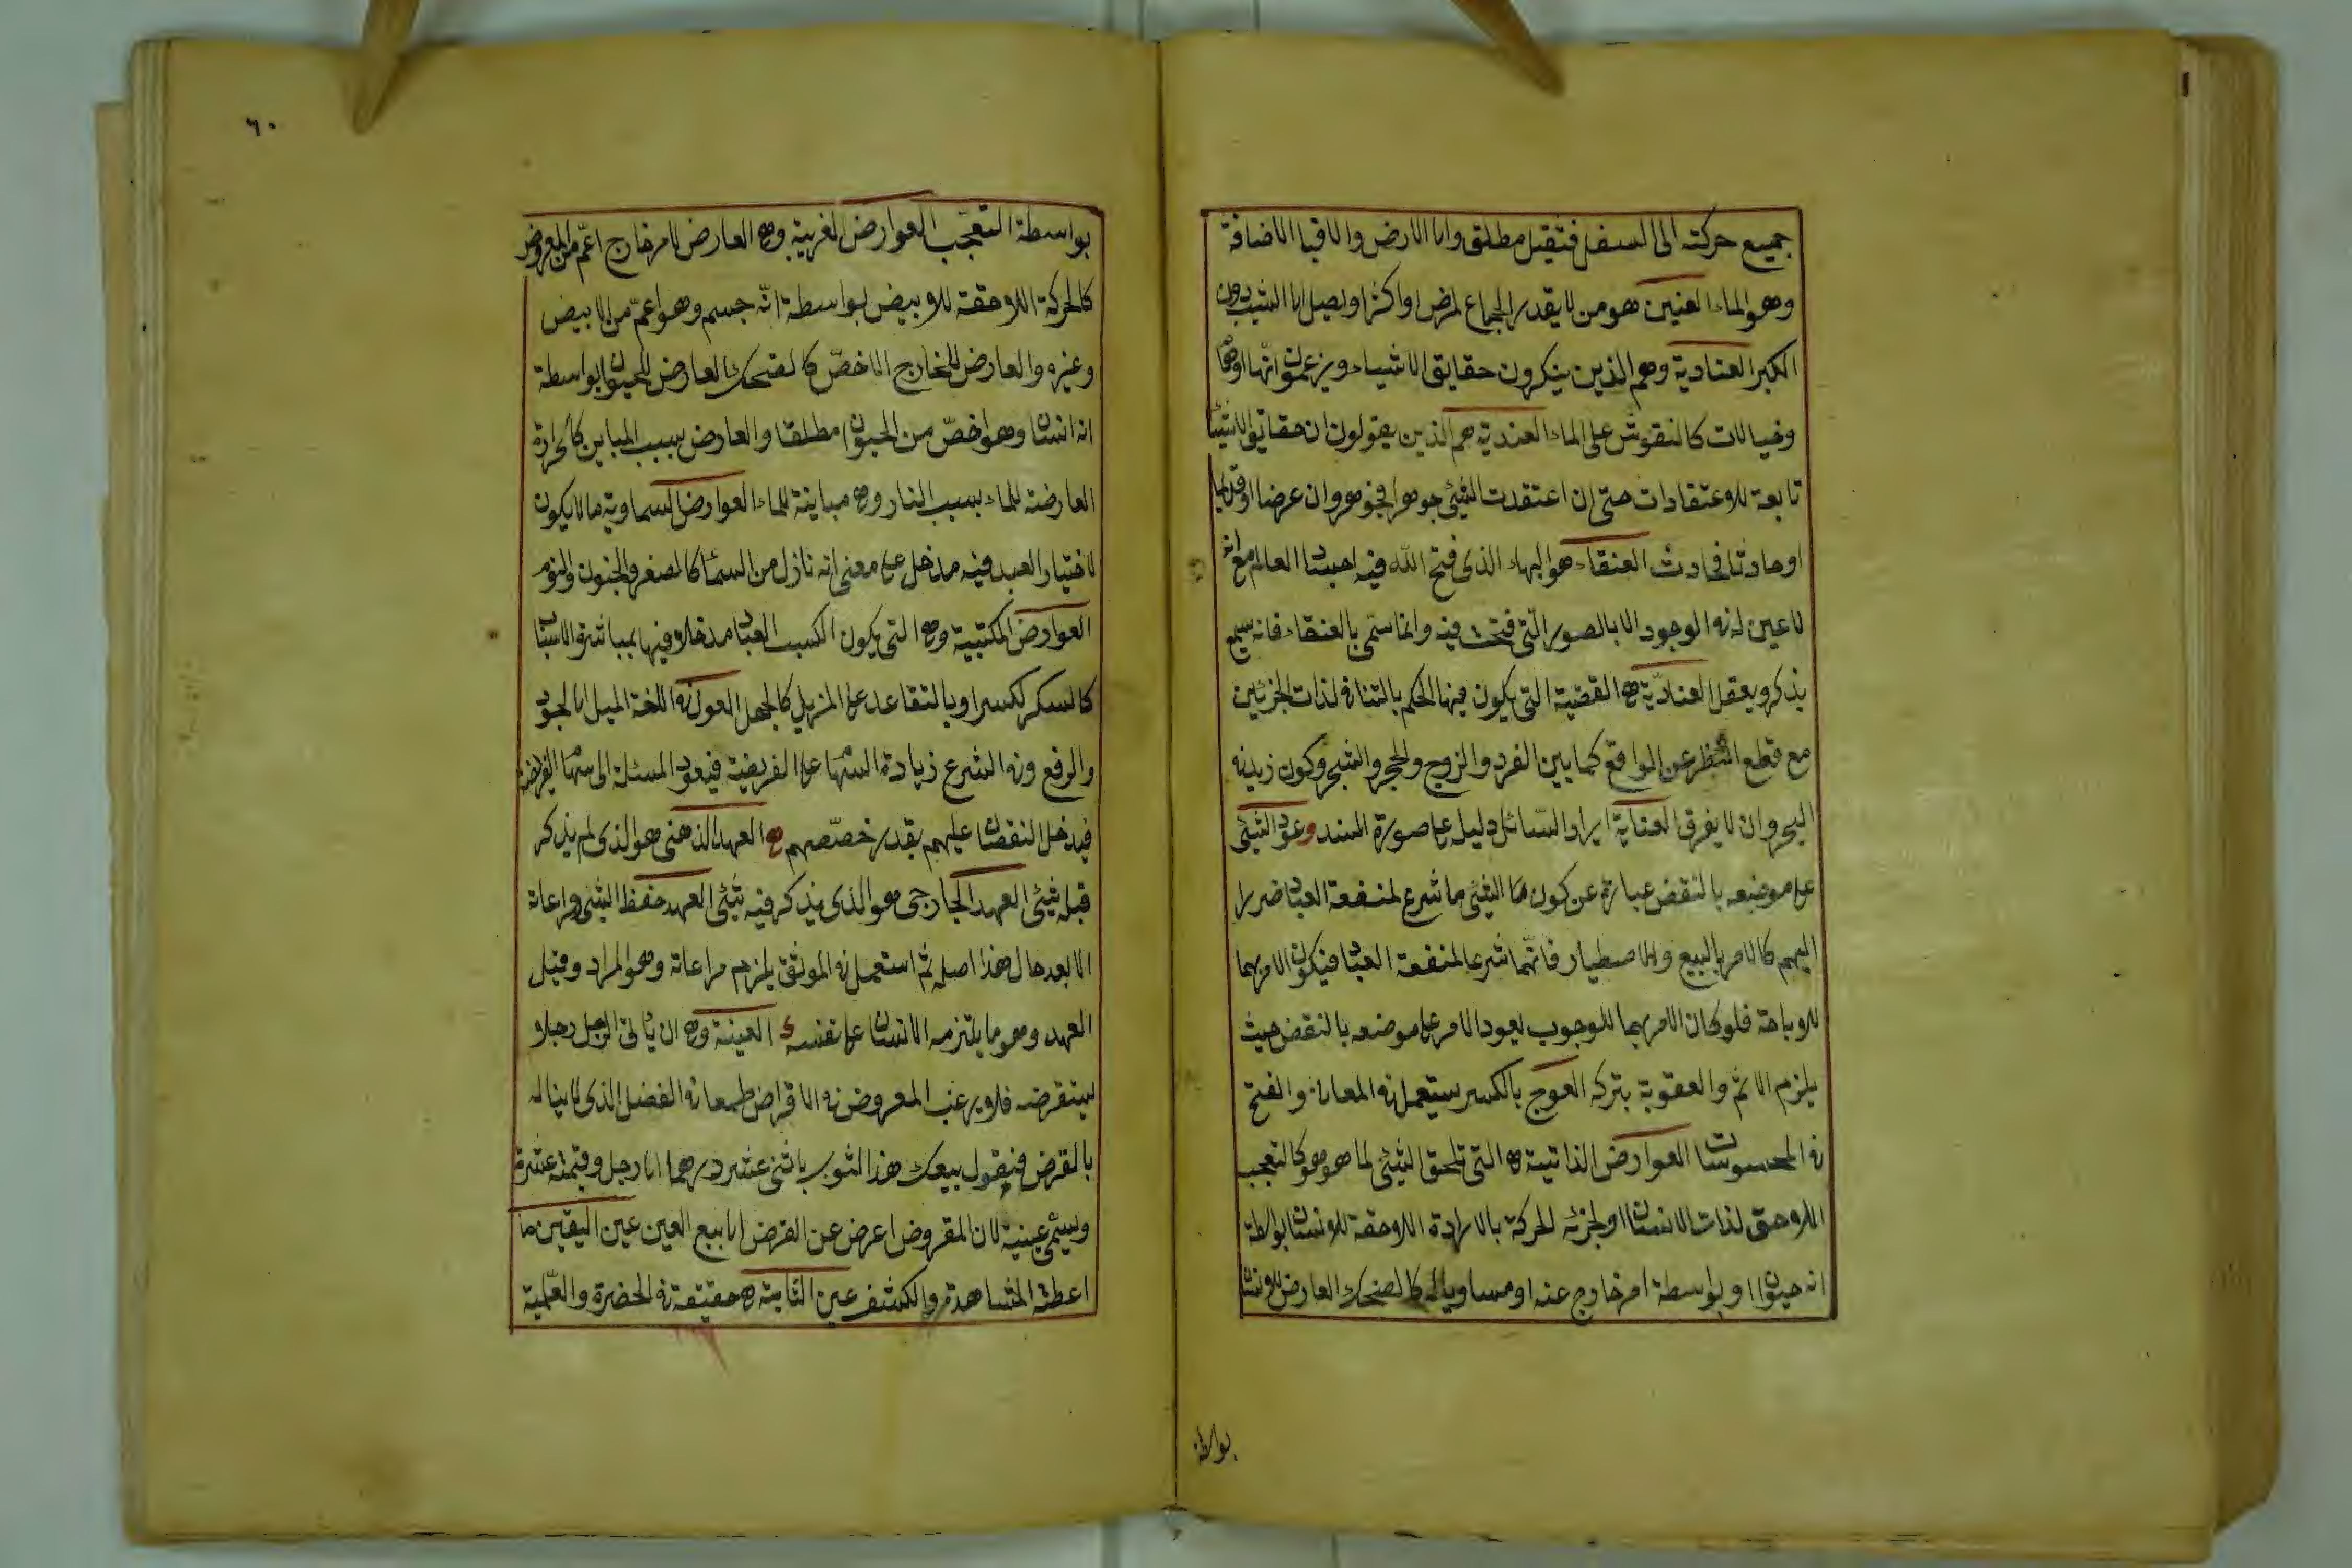 جميع حركته الى السفل فثقيل مطلق واما الارض والا فبا الاضافة
وهو الماء العنين هو من لا يقدر الجماع لمرض او اكثر او يصل الى الثيب دون
الكبر العنادية وهم الذين ينكرون حقايق الاشياء ويزعمون انها اوهام
وخيالات كالنقوش على الماء العندية هم الذين يقولون ان حقايق الاشياء
تابعة للاعتقادات حتى ان اعتقدت الشيئ جوهرا فجوهر وان عرضا او قديما
او حادثا فحادث العنقاء هو الهباء الذى فتح الله فيه اجساد العالم مع انه
لا عين له فى الوجود الا بالصور التى فتحت فيه وانما سمى بالعنقاء فانه يسمع
يذكر ويعقل العنادية هى القضية التى يكون فيها الحكم بالتنافى لذات الجزئين
مع قطع النظر عن الواقع كما بين الفرد والزوج والحجر والشجر وكون زيد فى
البحر وان لا يغرق العناية ايراد السائل دليل على صورة المسند وعود الشيئ
على موضعه بالنقض عبارة عن كون هذا الشيئ ما شرع لمنفعة العباد ضررا
اليهم كالامر بالبيع والاصطيار فانهما شرعا لمنفعة العباد فيكون الامر بهما
للاباحة فلو كان الامر بهما للوجوب لعود الامر على موضعه بالنقض حيث
يلزم الاثم والعقوبة بتركه العوج بالكسر يستعمل فى المعانى والفتح
فى المحسوسات العوارض الذاتية هى التى تلحق الشيئ لما هو هو كالتعجب
اللاحق لذات الانسان او لجزئه الحركة بالارادة اللاحقة للانسان بواسطة
انه حيوان او بواسطة امر خارج عنه او مساويا له كالضحك العارض للانسان
بواسطة
٦٠
بواسطة التعجب العوارض الغريبة وهى العارض لامر خارج اعم من المعروض
كالحركة اللاحقة للابيض بواسطة انه جسم وهو اعم من الابيض
وغيره والعارض للخارج الاخص كالضحك العارض للحيوان بواسطة
انه انسان وهو اخص من الحيوان مطلقا والعارض بسبب المباين كالحرارة
العارضة للماء بسبب النار وهى مباينة للماء العوارض السماوية ما لا يكون
لاختيار العبد فيه مدخل على معنى انه نازل من السماء كالصغر والجنون والنوم
العوارض المكتسبة وهى التى يكون الكسب العباد مدخلا فيها بمباشرة الاسباب
كالسكر لكسر او بالتقاعد على المزيل كالجهل العول فى اللغة الميل الى الجود
والرفع وفى الشرع زيادة السهام على الفريضة فيعود المسئلة الى سهام الفرائض
فيدخل النقصان عليهم بقدر خصصهم هى العهد الذهنى هو الذى لم يذكر
قبله شيئ العهد الخارجى هو الذى يذكر فيه شيئ العهد حفظ الشيئ ومراعاة
الا بعد حال هذا اصله ثم استعمل فى الموثق يلزم مراعاة وهو المراد وقيل
العهد وهو ما يلتزمه الانسان على نفسه العينة وهى ان يأتى الرجل رجلا
ليستقرضه فلا يرغب المعروض فى الاقراض طمعا فى الفضل الذى لا ينال
بالقرض فيقول بيعك هذا الثوب باثنى عشر درهما الى رجل وقيمته عشرة
ويسمى عينية لان المقروض اعرض عن القرض الى بيع العين عين اليقين ما
اعطته المشاهدة والكشف عين الثابتة هى حقيقة فى الحضرة والعلمية